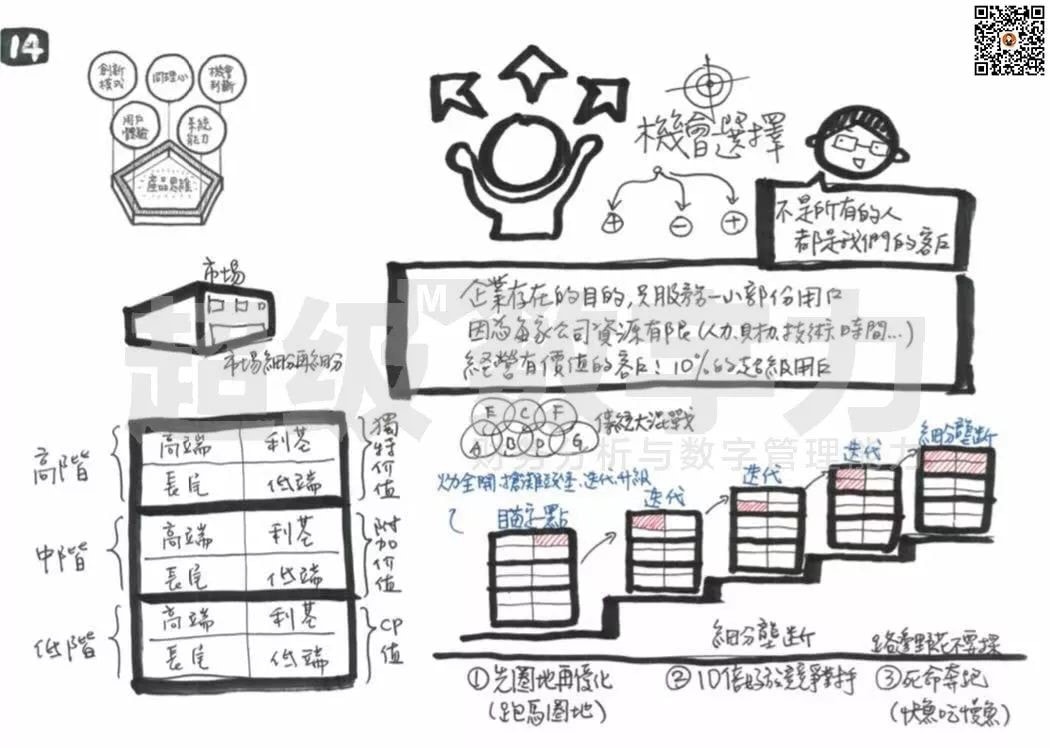 14
創新
模式
同理心
機會
判斷
用戶
體驗
系統
能力
產品思維
機會選擇
不是所有的人
都是我們的客戶
市場
市場細分再細分
企業存在的目的,只服務一小部份用戶
因為每家公司資源有限(人力.財力.技術.時間...)
經營有價值的客戶!10%的超級用戶
超级数字力
M
财务分析与数字管理能力
E C F
A B D G
傳統大混戰
火力全開.搶灘攻堡.迭代升級
瞄準一點
迭代
迭代
迭代
細分壟斷
高階
高端 利基
長尾 低端
獨特价值
中階
高端 利基
長尾 低端
附加价值
低階
高端 利基
長尾 低端
CP值
細分壟斷
路邊野花不要採
①先圈地再優化
(跑馬圈地)
②10倍好於競爭對手
③死命奔跑
(快魚吃慢魚)